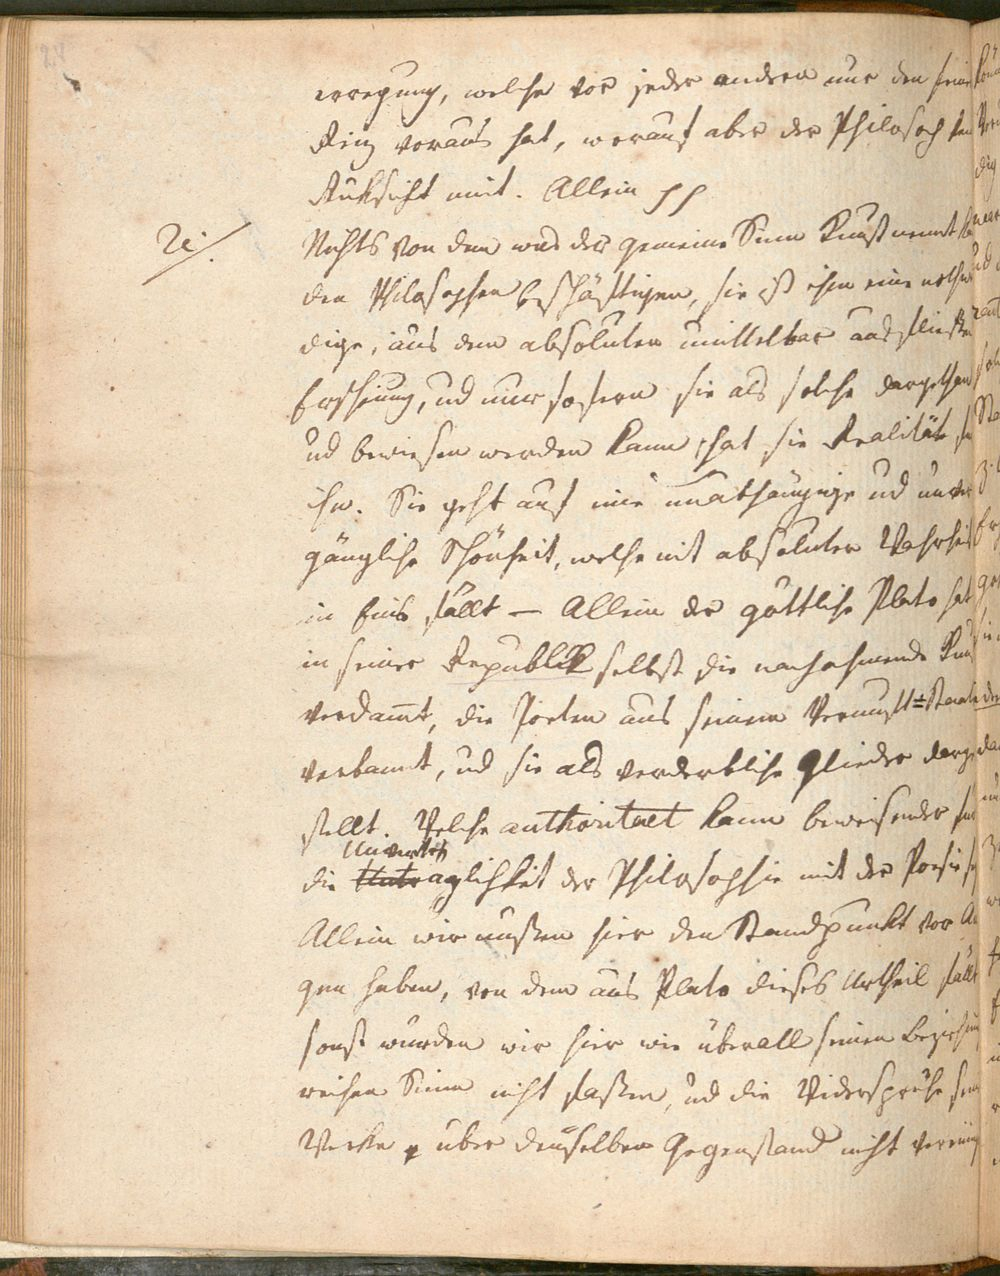 erregung, welche vor jeder andern nur den seine
Reiz voraus hat, worauf aber der Philosoph kein
Rüksicht nimt. Allein
Nichts von dem was der gemeine Sinn Kunst nennt kan
den Philosophen beschäftigen, sie ist ihm eine nothwen
dige, aus dem absoluten unmittelbar ausfließende
Erscheinung, und nur sofern sie als solche dargethan
und bewiesen werden kann, hat sie Realität für
ihn. Sie geht auf eine unabhängige und unver
gängliche Schönheit, welche mit absoluter Wahrheit
in Eins fällt — Allein der göttliche Plato hat
in seiner Republik selbst die nachahmende Kunst
verdamt, die Poeten aus seinem Vernunft=Staate
verbannt, und sie als verderbliche Glieder darge
stellt. Welche authoritaet kann beweisender für
Unverträ
die Unträglichkeit der Philosophie mit der Poesie
Allein wir müßen hier den Standpunkt vor Au
gen haben, von dem aus Plato dieses Urtheil fällt
sonst würden wir hier wie überall seinen Beziehung
reichen Sinn nicht faßen, und die Widersprüche seiner
Werke über denselben Gegenstand nicht vereinig